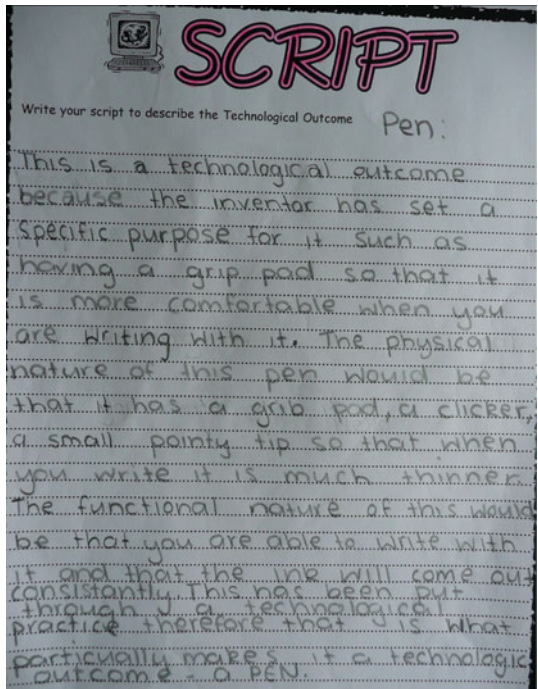 SCRIPT
Write your script to describe the Technological Outcome Pen:
This is a technological outcome
because the inventor has set a
specific purpose for it such as
having a grip pad so that it
is more comfortable when you
are writing with it. The physical
nature of this pen would be
that it has a grib pad, a clicker,
a small pointy tip so that when
you write it is much thinner.
The functional nature of this would
be that you are able to write with
it and that the ink will come out
consistantly. This has been put
through a technological
practice therefore that is what
particually makes it a technologic
outcome - a PEN.